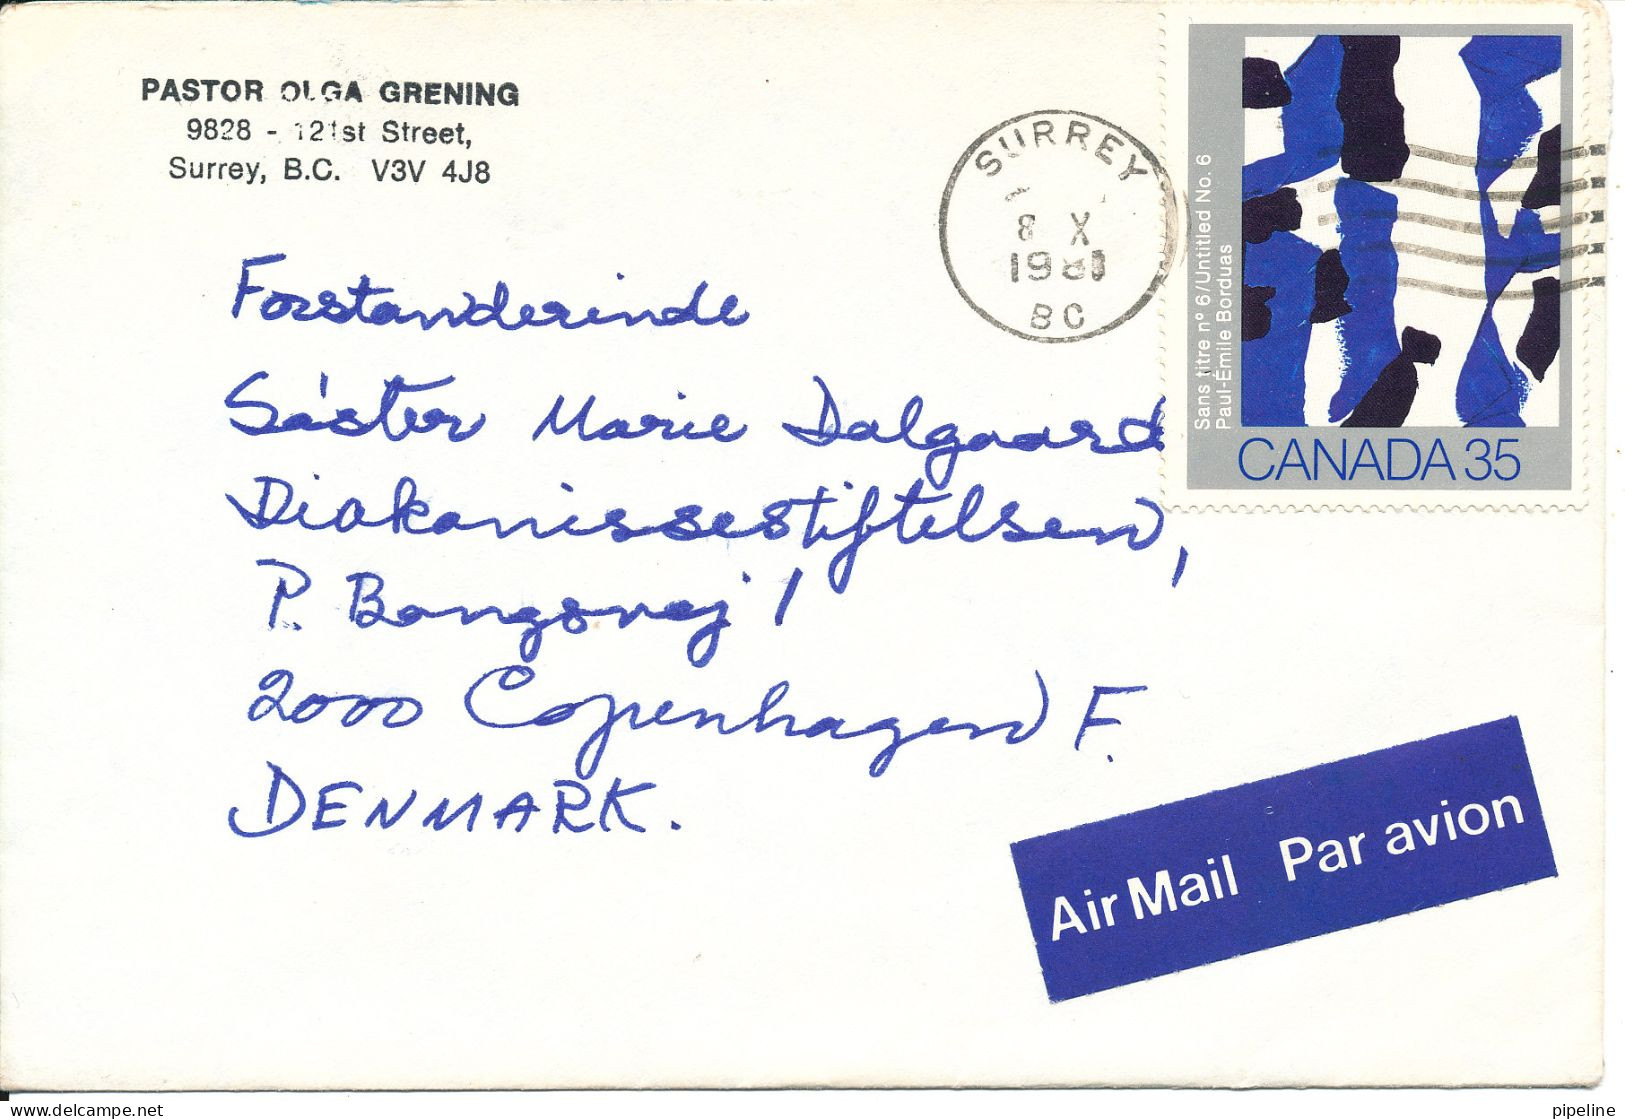 PASTOR OLGA GRENING
9828 - 121st Street,
Surrey, B.C. V3V 4J8
SURREY
8 X
1981
BC
Sans titre nº 6/Untitled No. 6
Paul-Émile Borduas
CANADA 35
Forstanderinde
Sáster Marie Dalgaard
Diakonissestiftelsen,
P. Bangsvej 1
2000 Copenhagen F.
DENMARK.
Air Mail Par avion
pipeline